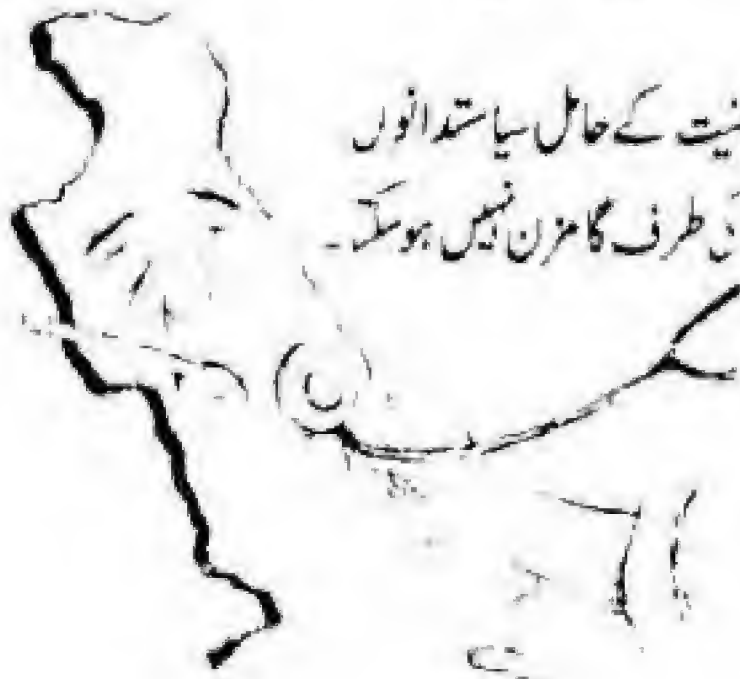 کے حامل سیاستدانوں
طرف گامزن نہیں ہوسکتا۔